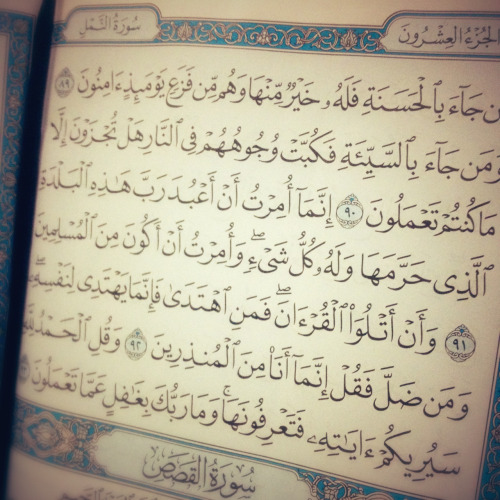 الجزء العشرون سورة النمل
من جَآءَ بِٱلْحَسَنَةِ فَلَهُۥ خَيْرٌ مِّنْهَا وَهُم مِّن فَزَعٍ يَوْمَئِذٍ ءَامِنُونَ ٨٩
وَمَن جَآءَ بِٱلسَّيِّئَةِ فَكُبَّتْ وُجُوهُهُمْ فِى ٱلنَّارِ هَلْ تُجْزَوْنَ إِلَّا
مَا كُنتُمْ تَعْمَلُونَ ٩٠ إِنَّمَآ أُمِرْتُ أَنْ أَعْبُدَ رَبَّ هَٰذِهِ ٱلْبَلْدَةِ
ٱلَّذِى حَرَّمَهَا وَلَهُۥ كُلُّ شَىْءٍ ۖ وَأُمِرْتُ أَنْ أَكُونَ مِنَ ٱلْمُسْلِمِينَ
٩١ وَأَنْ أَتْلُوَا۟ ٱلْقُرْءَانَ ۖ فَمَنِ ٱهْتَدَىٰ فَإِنَّمَا يَهْتَدِى لِنَفْسِهِۦ ۖ
وَمَن ضَلَّ فَقُلْ إِنَّمَآ أَنَا۠ مِنَ ٱلْمُنذِرِينَ ٩٢ وَقُلِ ٱلْحَمْدُ لِلَّهِ
سَيُرِيكُمْ ءَايَٰتِهِۦ فَتَعْرِفُونَهَا ۚ وَمَا رَبُّكَ بِغَٰفِلٍ عَمَّا تَعْمَلُونَ
سورة القصص